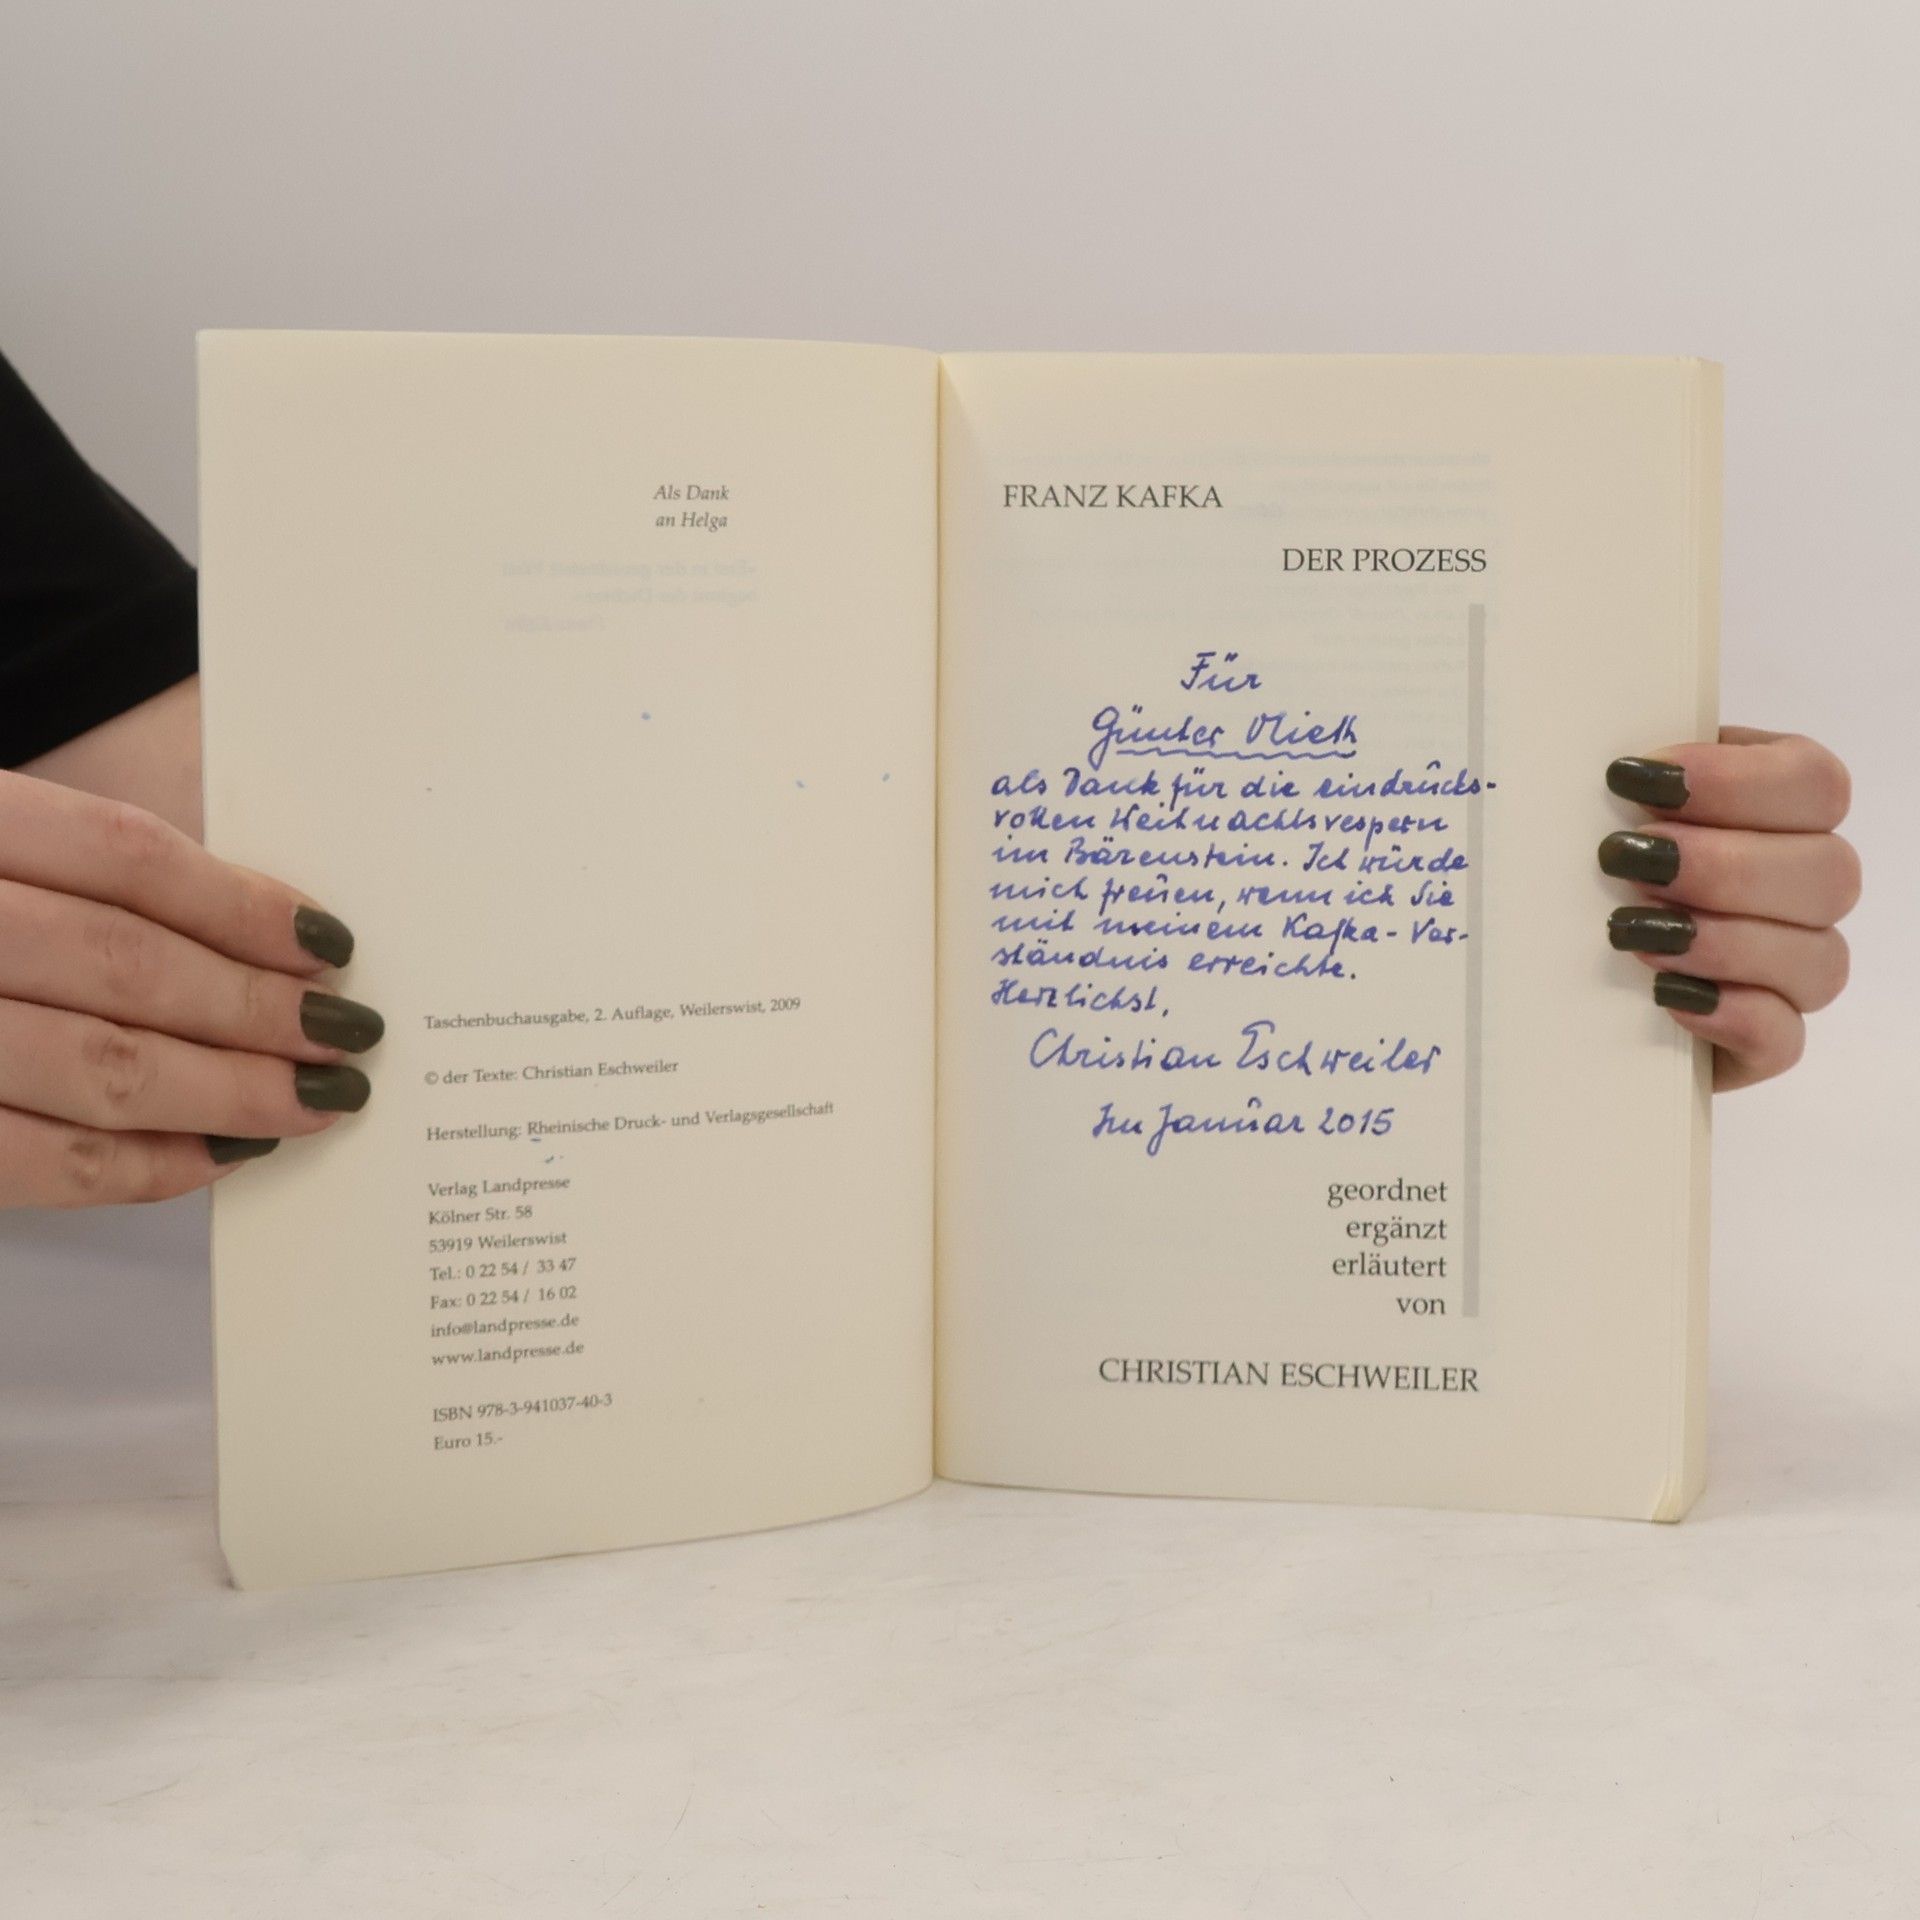 Als Dank
an Helga
Taschenbuchausgabe, 2. Auflage, Weilerswist, 2009
© der Texte: Christian Eschweiler
Herstellung: Rheinische Druck- und Verlagsgesellschaft
Verlag Landpresse
Kölner Str. 58
53919 Weilerswist
Tel.: 0 22 54 / 33 47
Fax: 0 22 54 / 16 02
info@landpresse.de
www.landpresse.de
ISBN 978-3-941037-40-3
Euro 15.-
FRANZ KAFKA
DER PROZESS
Für
Günter Mieth
als Dank für die eindrucks-
vollen Weihnachtsvespern
im Bärenstein. Ich würde
mich freuen, wenn ich Sie
mit meinem Kafka-Ver-
ständnis erreichte.
Herzlichst,
Christian Eschweiler
Im Januar 2015
geordnet
ergänzt
erläutert
von
CHRISTIAN ESCHWEILER